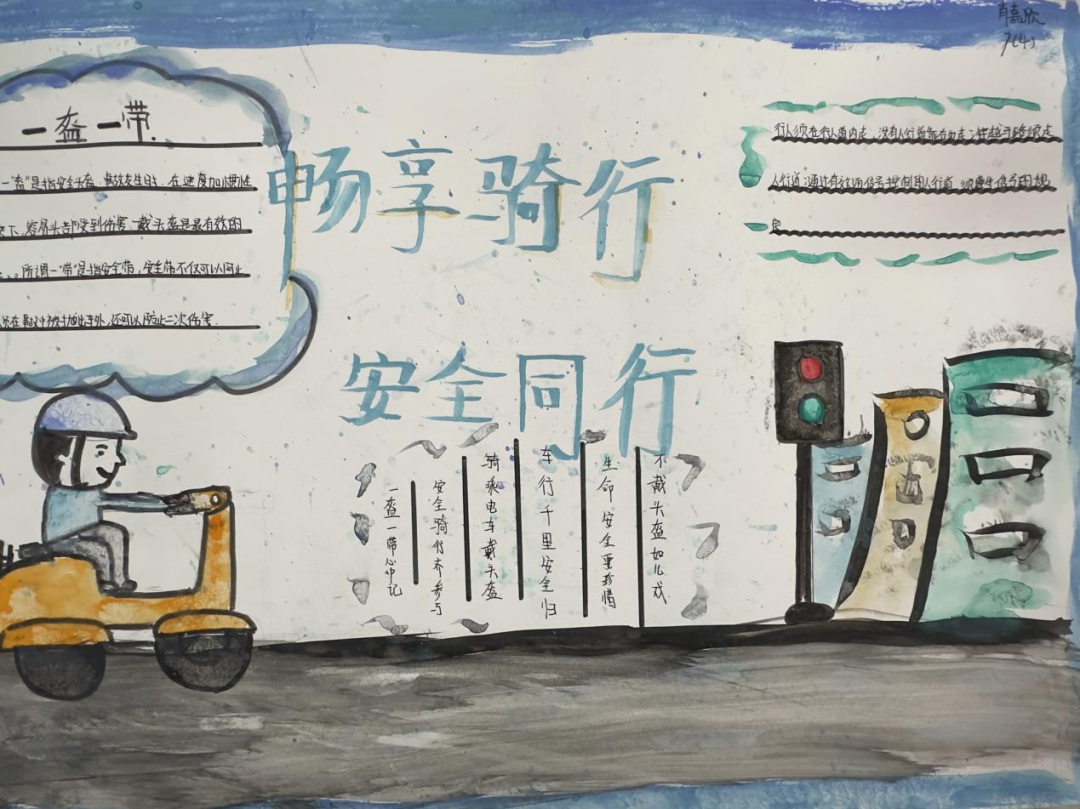 7(4)
一盔一带
"一盔"是指安全头盔,事故发生时,在速度加惯性
下,容易头部受到伤害 戴头盔是最有效的
。所谓一"带"是指安全带,安全带不仅可以
被抛出车外,还可以防止二次伤害.
畅享骑行
安全同行
行人须在行人道内走,没有人行道靠右边走;穿越马路须走
人行道;通过有
不戴头盔如儿戏
生命安全要珍惜
车行千里安全归
骑乘电车戴头盔
安全骑行齐参与
一盔一带心中记